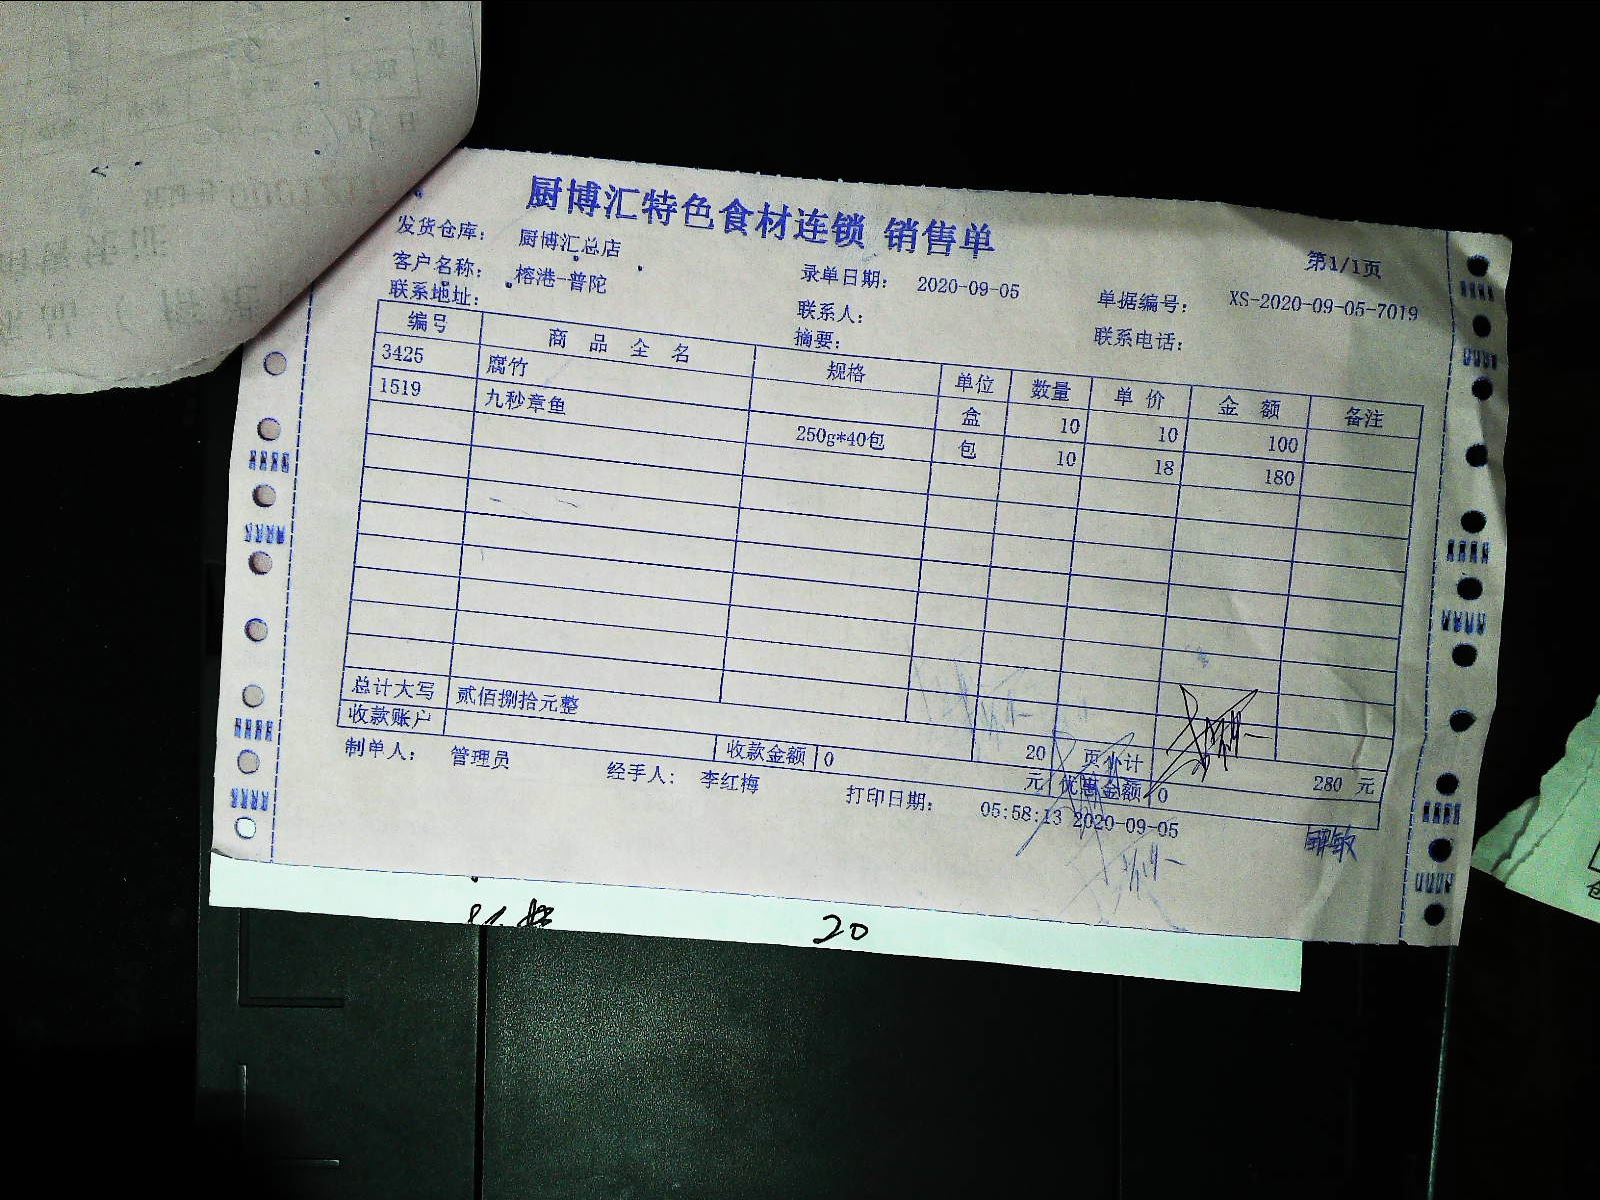 厨博汇特色食材连锁 销售单
第1/1页
发货仓库： 厨博汇总店
客户名称： 榕港-普陀 录单日期： 2020-09-05 单据编号： XS-2020-09-05-7019
联系地址： 联系人： 联系电话：
摘要：
编号 商品全名 规格 单位 数量 单价 金额 备注
3425 腐竹 盒 10 10 100
1519 九秒章鱼 250g*40包 包 10 18 180
总计大写 贰佰捌拾元整 20 页小计 280 元
收款账户 收款金额 0 元 优惠金额 0
制单人： 管理员 经手人： 李红梅 打印日期： 05:58:13 2020-09-05
20